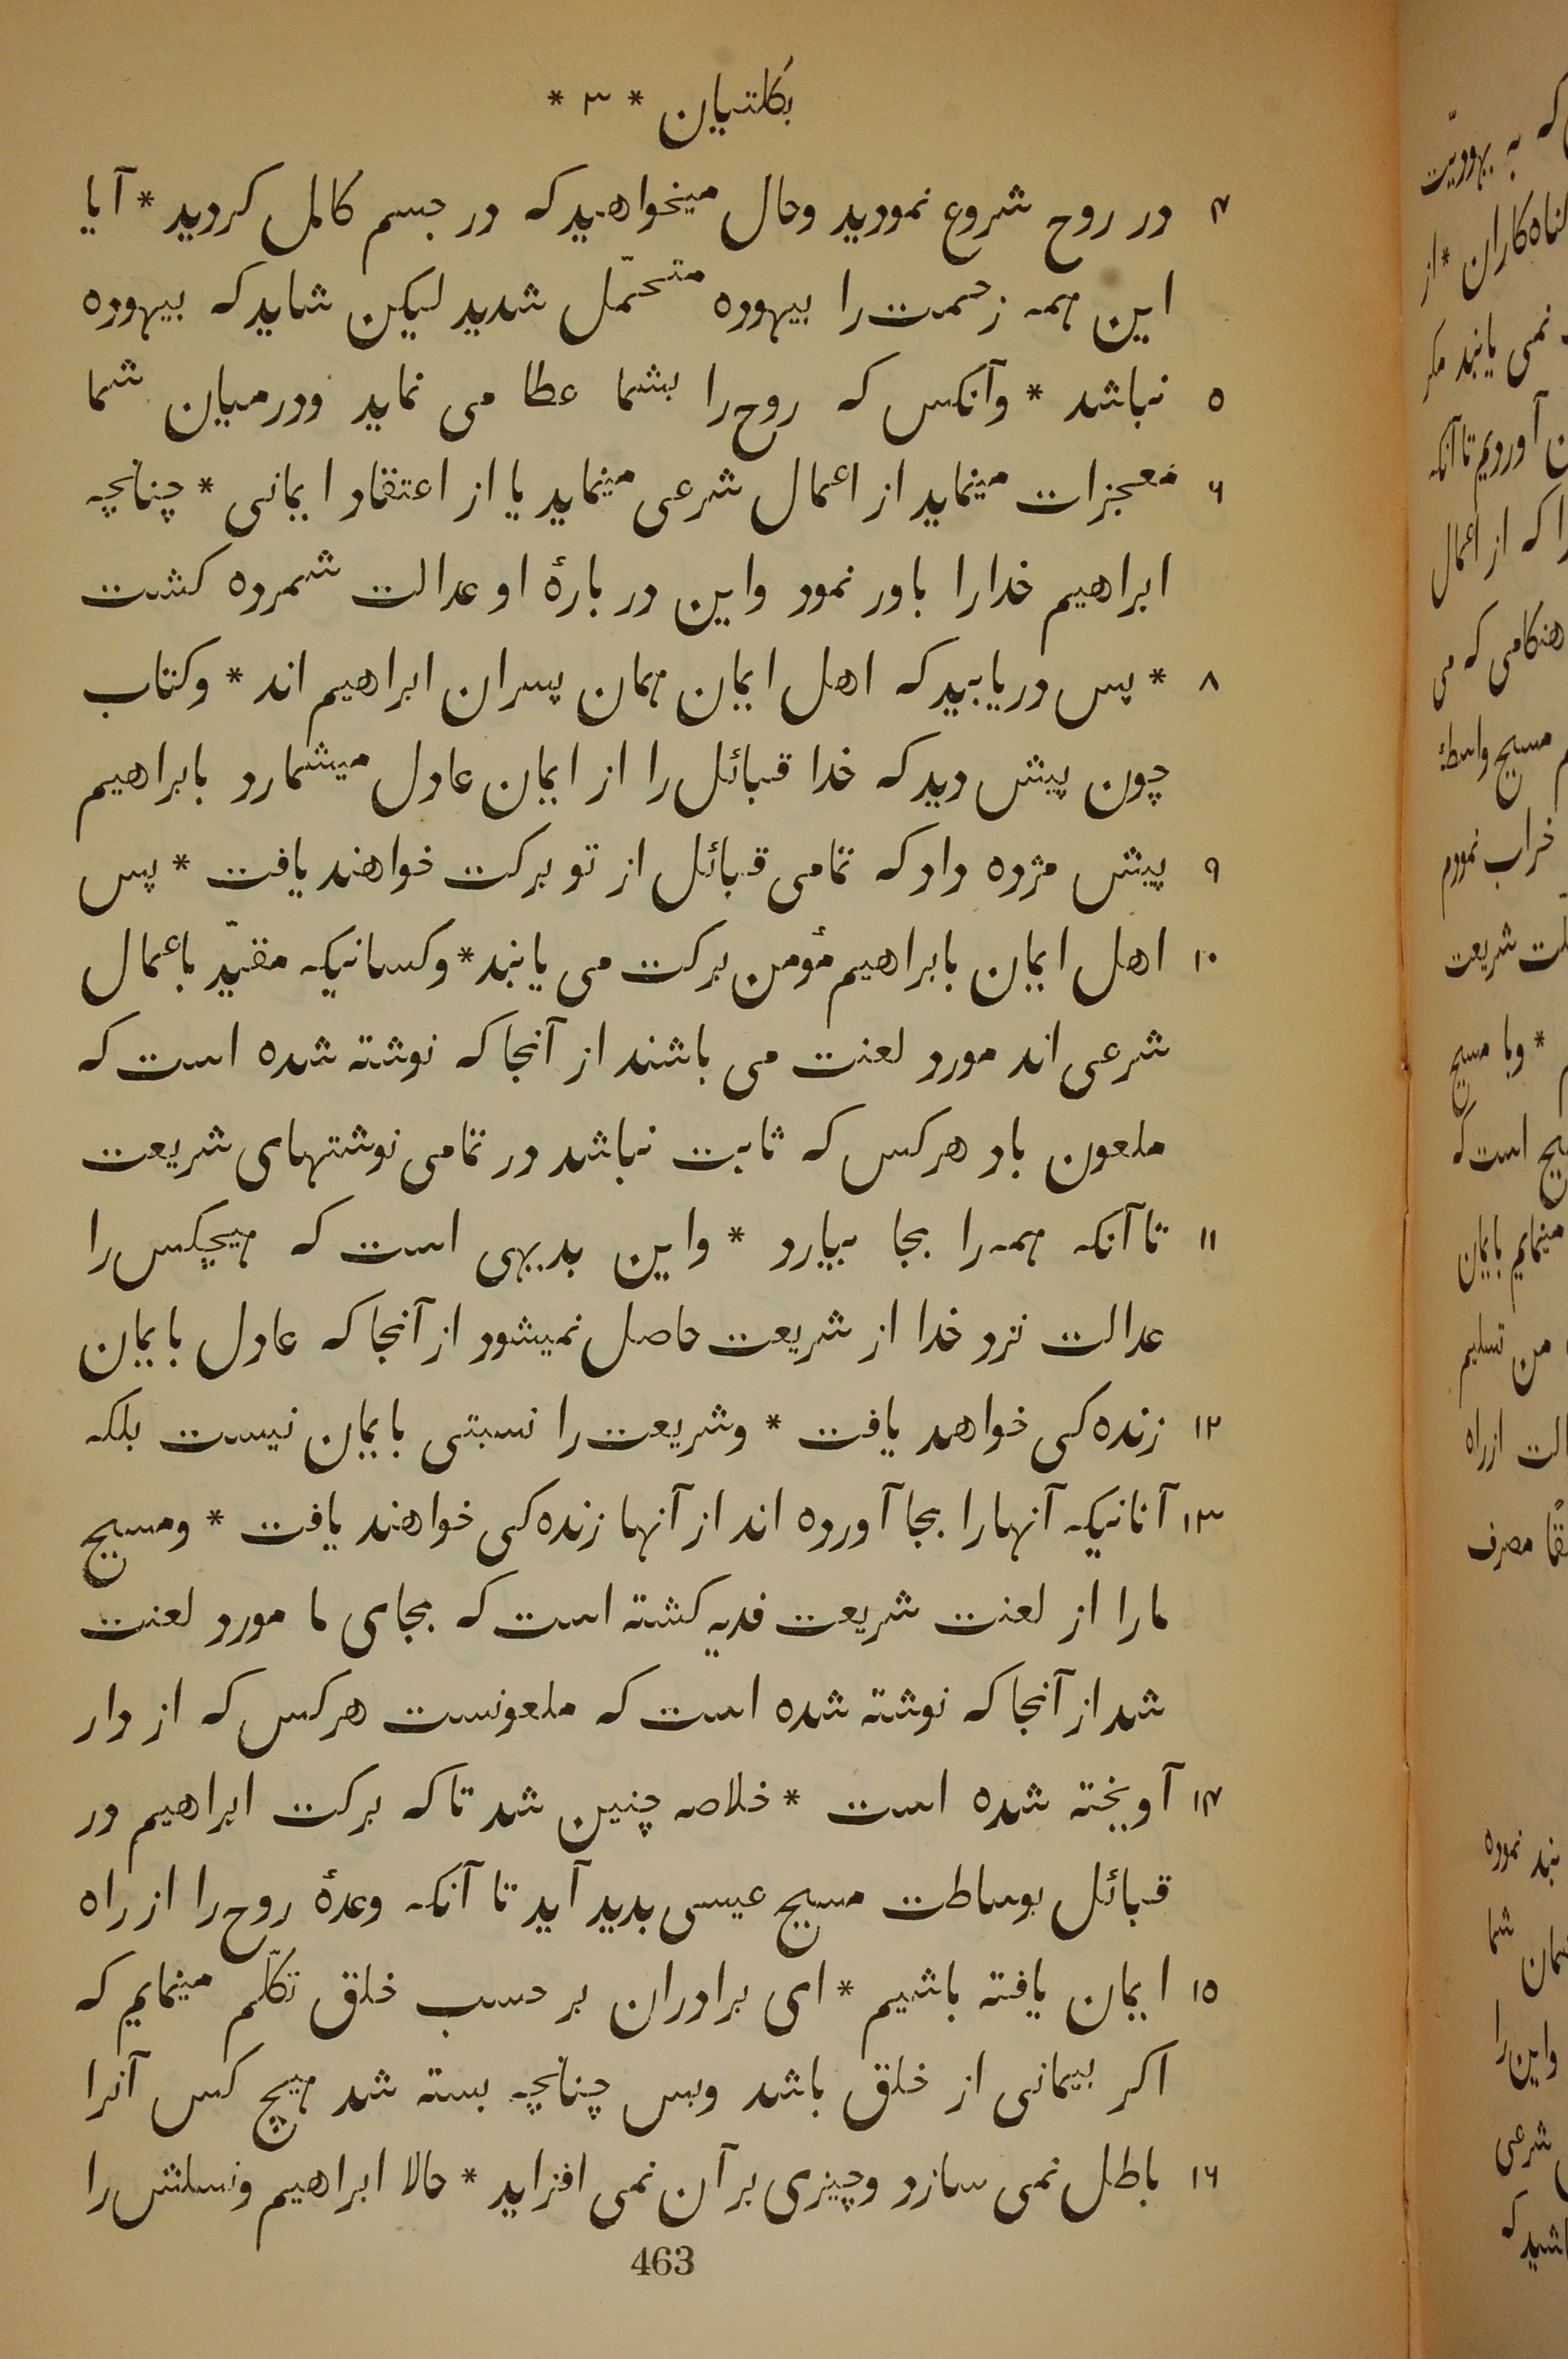 بکلتیان * ۳ *
۴ در روح شروع نمودید وحال میخواهید که در جسم کامل کردید * آیا
این همه زحمت را بیهوده متحمّل شدید لیکن شاید که بیهوده
۵ نباشد * وآنکس که روح را بشما عطا می نماید ودرمیان شما
۶ معجزات مینماید از اعمال شرعی مینماید یا از اعتقاد ایمانی * چنانچه
ابراهیم خدارا باور نمود واین در بارهٔ او عدالت شمرده کشت
۸ * پس دریابید که اهل ایمان همان پسران ابراهیم اند * وکتاب
چون پیش دید که خدا قبائل را از ایمان عادل میشمارد بابراهیم
۹ پیش مژده داد که تمامی قبائل از تو برکت خواهند یافت * پس
۱۰ اهل ایمان بابراهیم مؤمن برکت می یابند * وکسانیکه مقیّد باعمال
شرعی اند مورد لعنت می باشند از آنجا که نوشته شده است که
ملعون باد هرکس که ثابت نباشد در تمامی نوشتهای شریعت
۱۱ تا آنکه همه را بجا بیارد * واین بدیهی است که هیچکس را
عدالت نزد خدا از شریعت حاصل نمیشود از آنجا که عادل بایمان
۱۲ زنده کی خواهد یافت * وشریعت را نسبتی بایمان نیست بلکه
۱۳ آنانیکه آنهارا بجا آورده اند از آنها زنده کی خواهند یافت * ومسیح
مارا از لعنت شریعت فدیه کشته است که بجای ما مورد لعنت
شد از آنجا که نوشته شده است که ملعونست هرکس که از دار
۱۴ آویخته شده است * خلاصه چنین شد تا که برکت ابراهیم در
قبائل بوساطت مسیح عیسی بدید آید تا آنکه وعدهٔ روح را از راه
۱۵ ایمان یافته باشیم * ای برادران بر حسب خلق تکلّم مینمایم که
اکر بیمانی از خلق باشد وبس چنانچه بسته شد هیچ کس آنرا
۱۶ باطل نمی سازد وچیزی بر آن نمی افزاید * حالا ابراهیم ونسلش را
463
که به یهودیّت
کناه کاران * از
نمی یابند مکر
آوردیم تا آنکه
را که از اعمال
هنکامی که می
مسیح واسطهٔ
خراب نمودم
شریعت
* وبا مسیح
است که
مینمایم بایمان
من تسلیم
از راه
مصرف
نموده
شما
واین را
شرعی